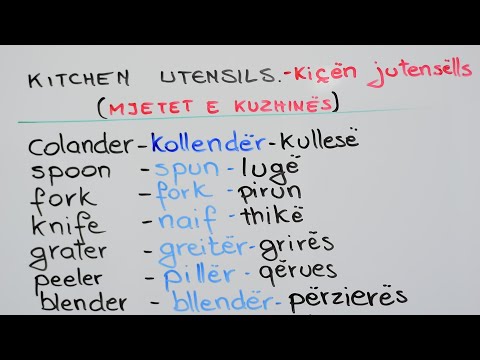 KITCHEN UTENSILS.-Kiçën jutensëlls
(MJETET E KUZHINËS)
colander-kollendër-kullesë
spoon - spun - lugë
fork - fork - pirun
knife - naif - thikë
grater - greitër-grirës
peeler - pillër - qërues
blender - bllendër-përzierës